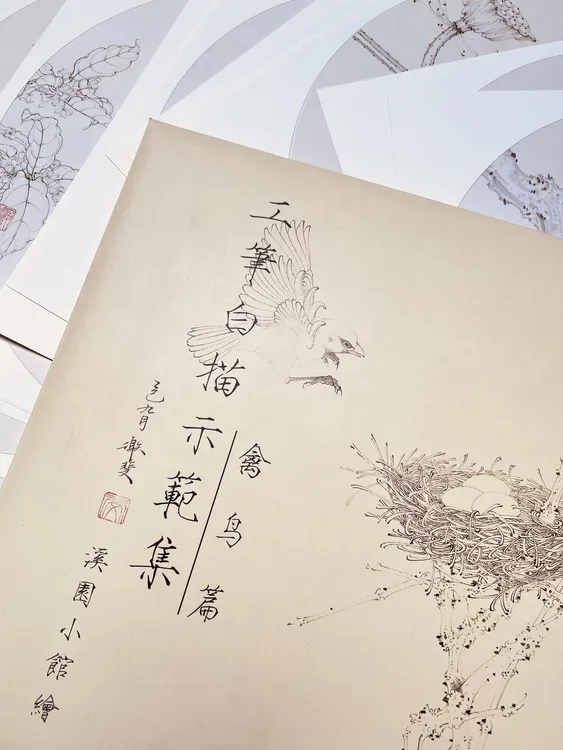 工筆白描示範集
禽鸟篇
乙巳九月
溪園小館繪